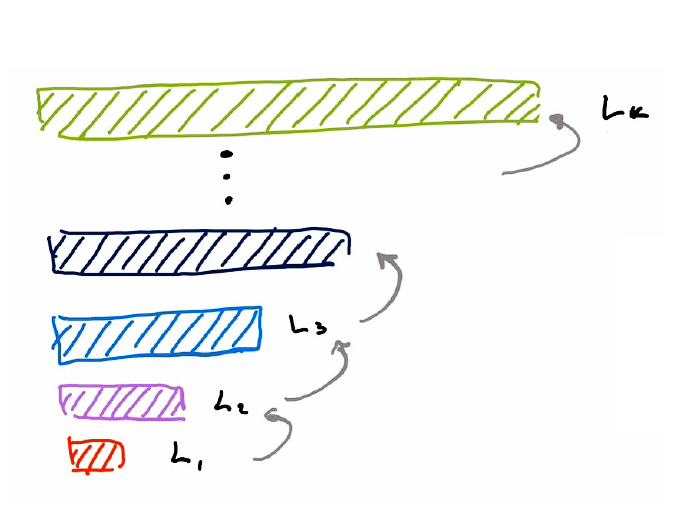 Lk
L3
L2
L1